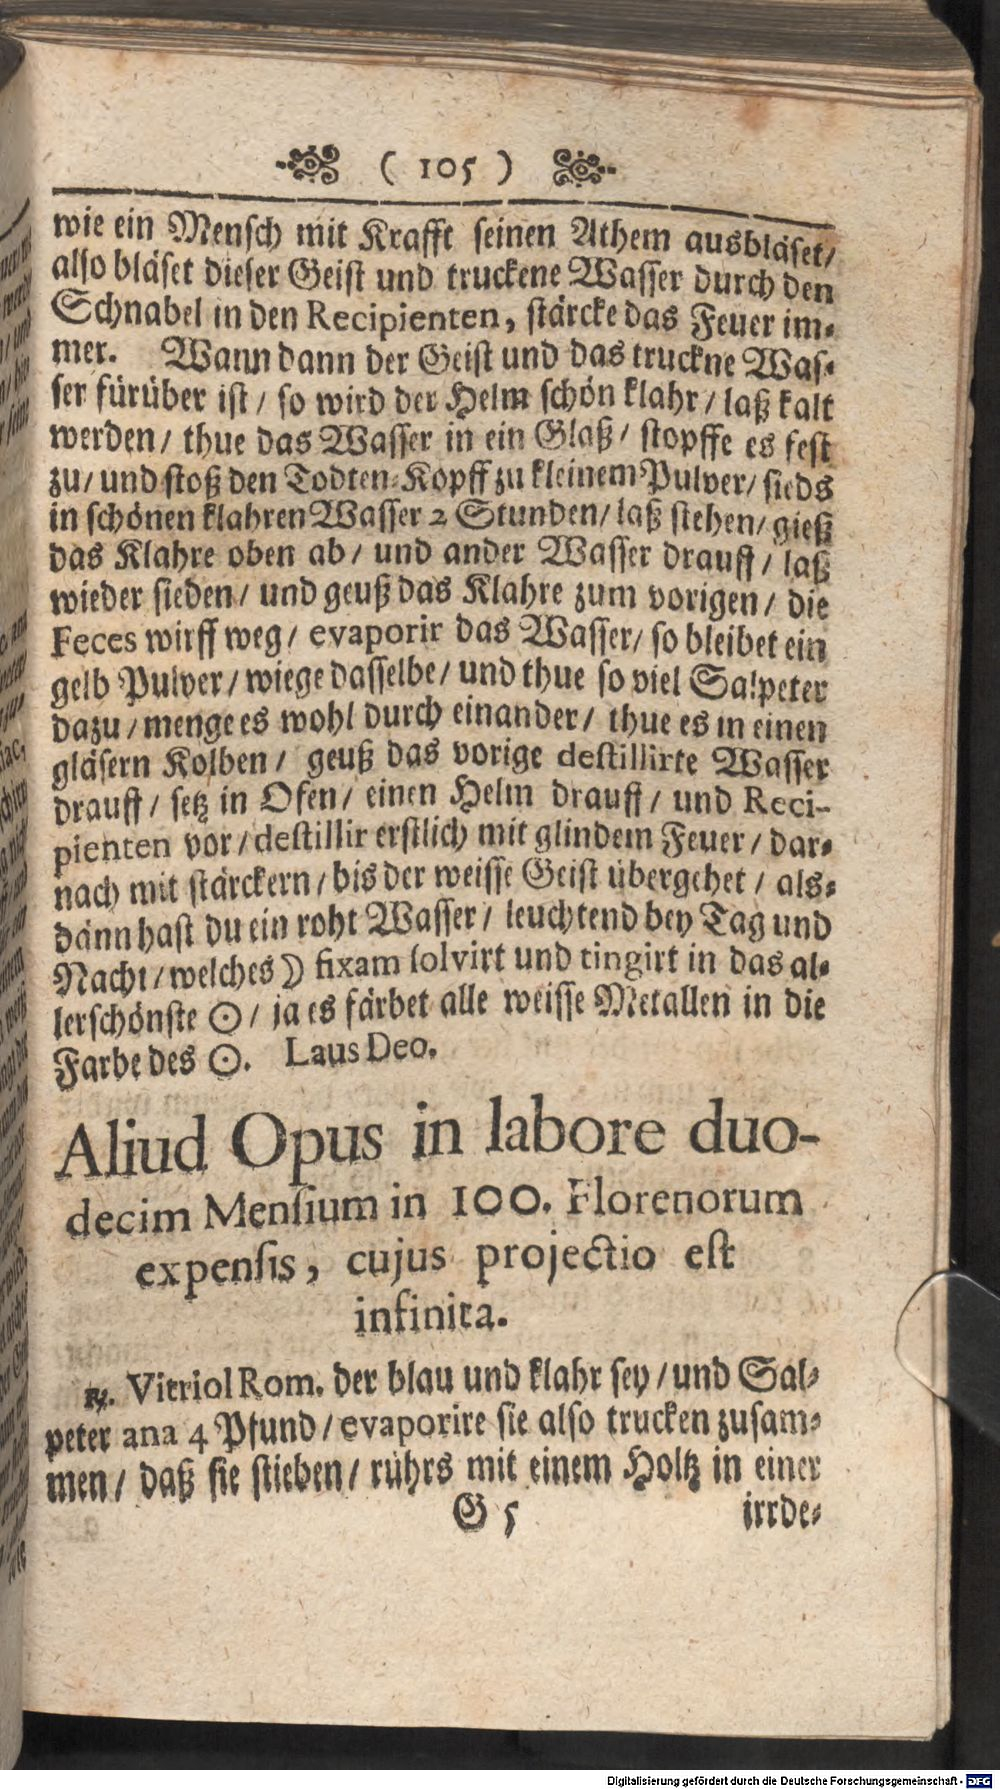 ( 105 )
wie ein Mensch mit Krafft seinen Athem ausbläset/
also bläset dieser Geist und truckene Wasser durch den
Schnabel in den Recipienten, stärcke das Feuer im-
mer. Wann dann der Geist und das truckne Was-
ser fürüber ist / so wird der Helm schön klahr / laß kalt
werden / thue das Wasser in ein Glaß / stopffe es fest
zu / und stoß den Todten-Kopff zu kleinem Pulver / sieds
in schönen klahren Wasser 2 Stunden / laß stehen / gieß
das Klahre oben ab / und ander Wasser drauff / laß
wieder sieden / und geuß das Klahre zum vorigen / die
Feces wirff weg / evaporir das Wasser / so bleibet ein
gelb Pulver / wiege dasselbe / und thue so viel Salpeter
dazu / menge es wohl durch einander / thue es in einen
gläsern Kolben / geuß das vorige destillirte Wasser
drauff / setz in Ofen / einen Helm drauff / und Reci-
pienten vor / destillir erstlich mit glindem Feuer / dar-
nach mit stärckern / bis der weisse Geist übergehet / als-
dann hast du ein roht Wasser / leuchtend bey Tag und
Nacht / welches ☽ fixam solvirt und tingirt in das al-
lerschönste ☉ / ja es färbet alle weisse Metallen in die
Farbe des ☉. Laus Deo.
Aliud Opus in labore duo-
decim Mensium in 100. Florenorum
expensis, cujus projectio est
infinita.
℞. Vitriol Rom. der blau und klahr sey / und Sal-
peter ana 4 Pfund / evaporire sie also trucken zusam-
men / daß sie stieben / rührs mit einem Holtz in einer
G 5 irrde-
Digitalisierung gefördert durch die Deutsche Forschungsgemeinschaft - DFG